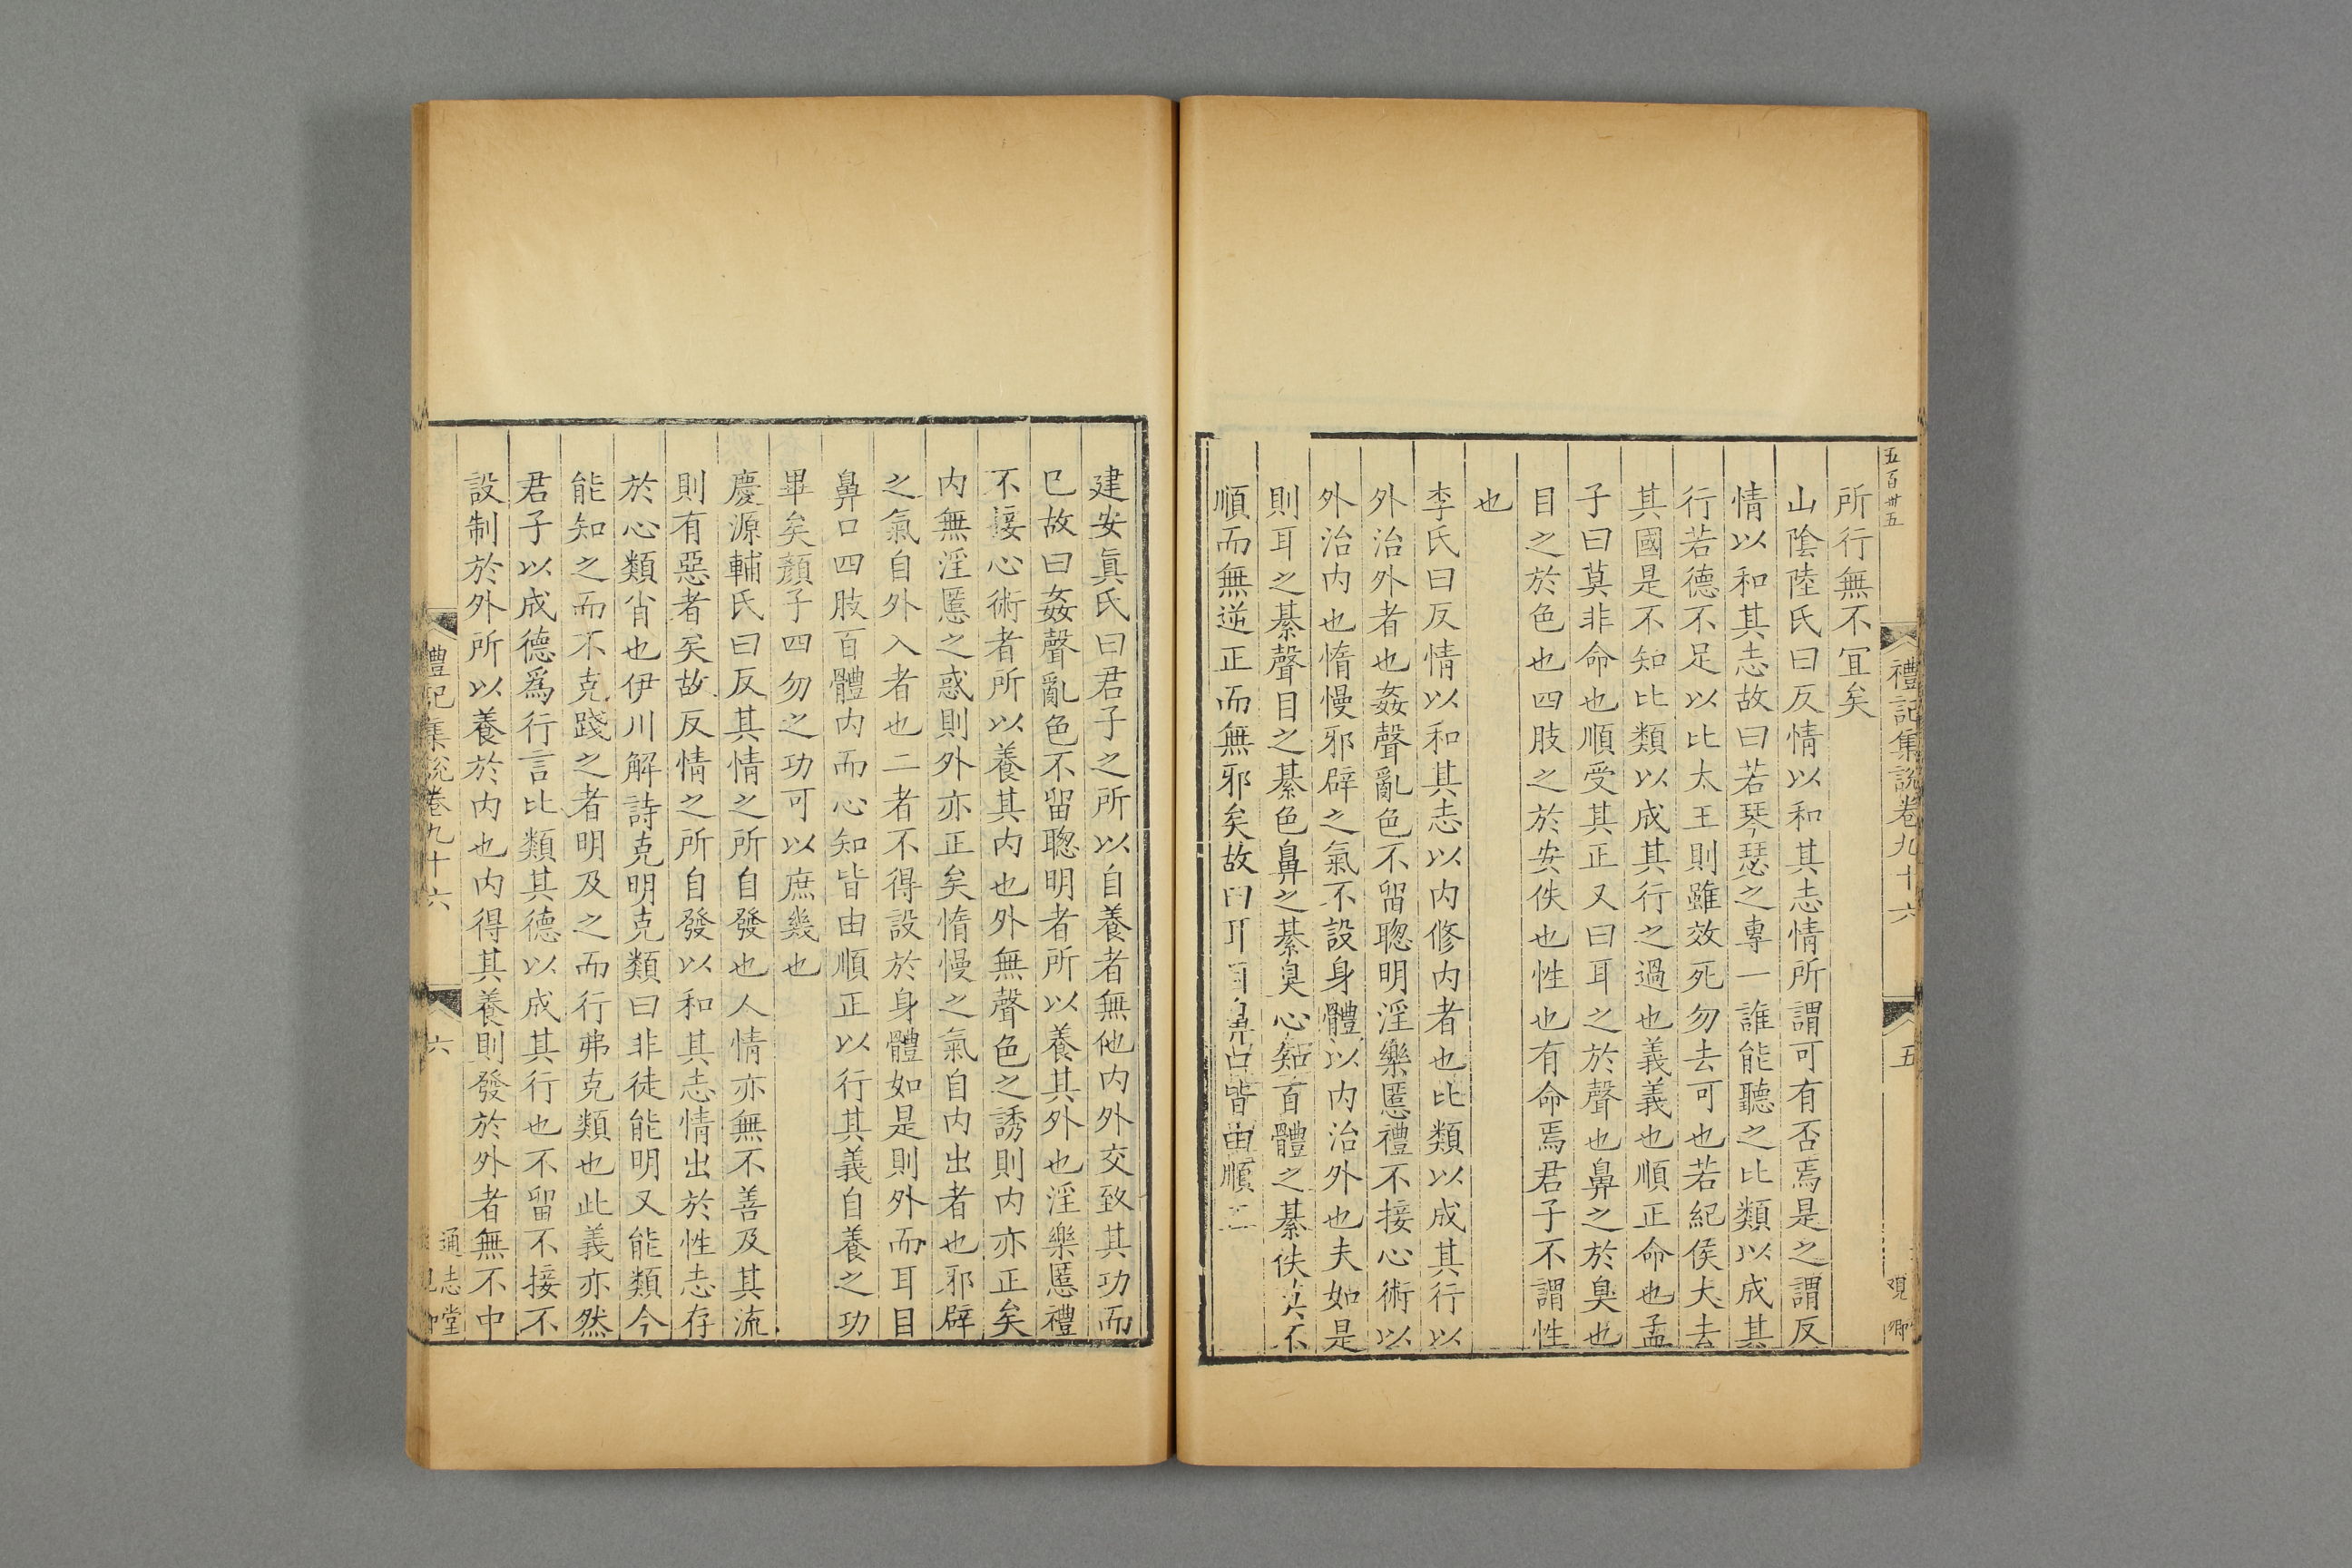 五百卅五
禮記集說卷九十六
五
覌卿
所行無不冝矣
山陰陸氏曰反情以和其志情所謂可有否焉是之謂反
情以和其志故曰若琴瑟之專一誰能聽之比類以成其
行若德不足以比太王則雖效死勿去可也若紀侯大去
其國是不知比類以成其行之過也義義也順正命也孟
子曰莫非命也順受其正又曰耳之於聲也鼻之於臭也
目之於色也四肢之於安佚也性也有命焉君子不謂性
也
李氏曰反情以和其志以内修内者也比類以成其行以
外治外者也姦聲亂色不留聦明淫樂慝禮不接心術以
外治内也惰慢邪辟之氣不設身體以内治外也夫如是
則耳之綦聲目之綦色鼻之綦臭心知百體之綦佚莫不
順而無逆正而無邪矣故曰耳目鼻口皆由順正
建安眞氏曰君子之所以自養者無他内外交致其功而
已故曰姦聲亂色不留聦明者所以養其外也淫樂慝禮
不接心術者所以養其内也外無聲色之誘則内亦正矣
内無淫慝之惑則外亦正矣惰慢之氣自内出者也邪辟
之氣自外入者也二者不得設於身體如是則外而耳目
鼻口四肢百體内而心知皆由順正以行其義自養之功
畢矣顏子四勿之功可以庶幾也
慶源輔氏曰反其情之所自發也人情亦無不善及其流
則有惡者矣故反情之所自發以和其志情出於性志存
於心類肖也伊川解詩克明克類曰非徒能明又能類今
能知之而不克踐之者明及之而行弗克類也此義亦然
君子以成德爲行言比類其德以成其行也不留不接不
設制於外所以養於内也内得其養則發於外者無不中
禮記集說卷九十六
六
通志堂